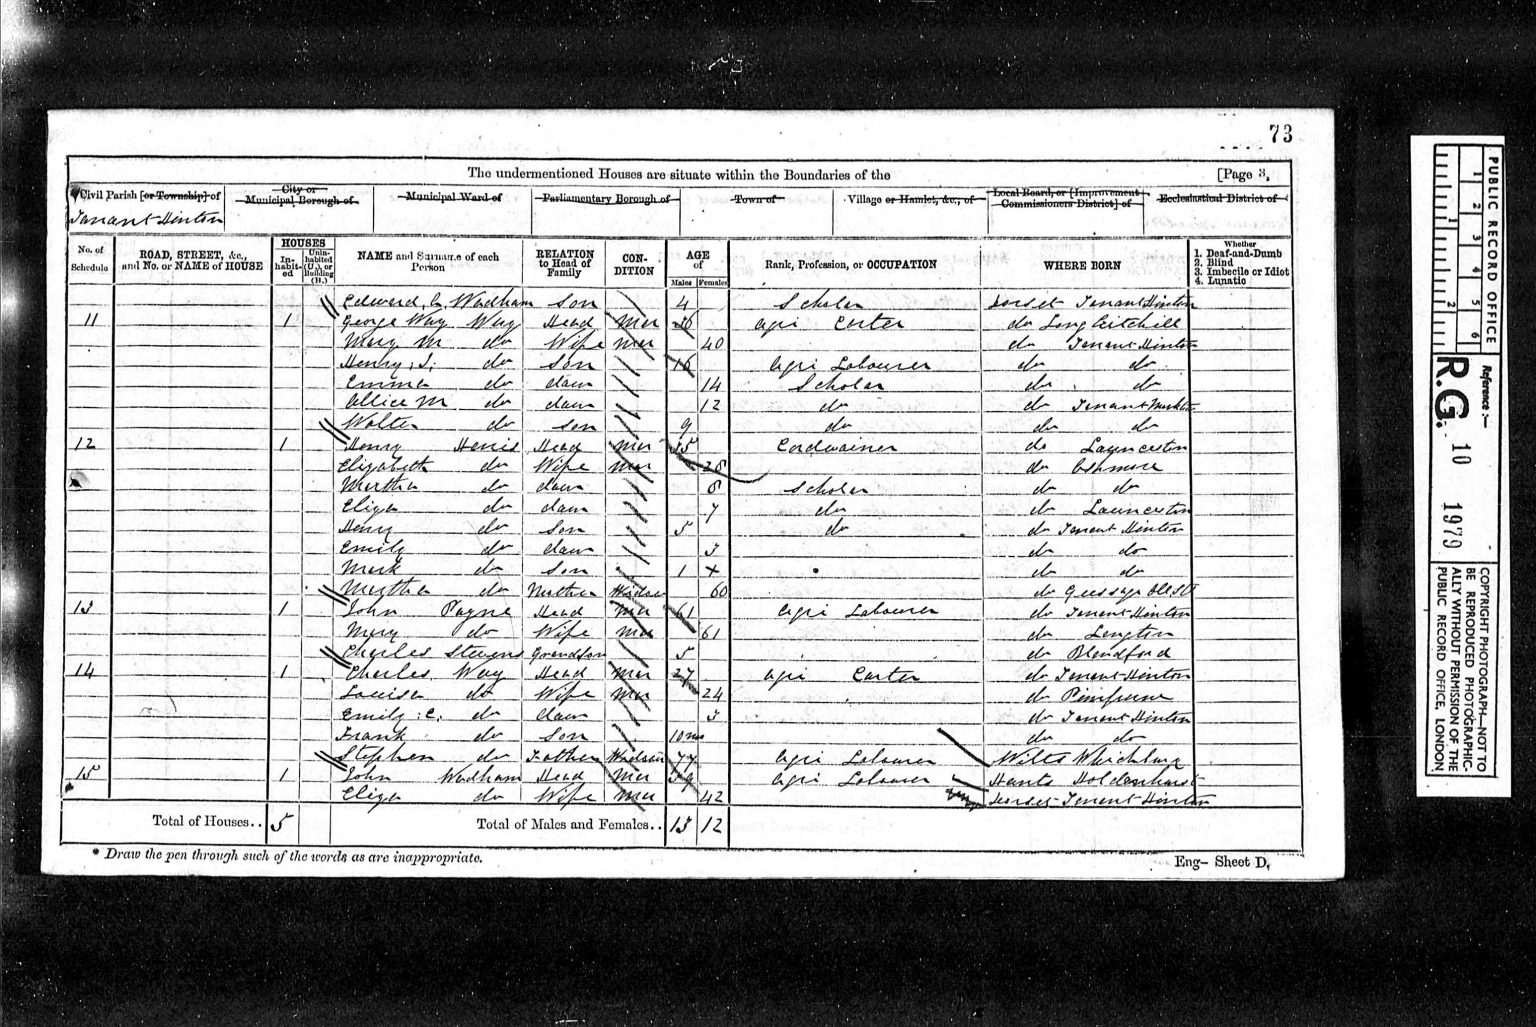 73
The undermentioned Houses are situate within the Boundaries of the [Page 3,
Civil Parish [or Township] of City or Municipal Borough of Municipal Ward of Parliamentary Borough of Town of Village or Hamlet, &c., of Local Board, or [Improvement Commissioners District] of Ecclesiastical District of
Tarrant Hinton
No. of Schedule ROAD, STREET, &c., and No. or NAME of HOUSE HOUSES In-habit-ed Unin-habited (U.), or Building (B.) NAME and Surname of each Person RELATION to Head of Family CON-DITION AGE of Males Females Rank, Profession, or OCCUPATION WHERE BORN Whether 1. Deaf-and-Dumb 2. Blind 3. Imbecile or Idiot 4. Lunatic
Edward Wadham Son 4 Scholar Dorset Tarrant Hinton
11 1 George Way Way Head Mar 36 Agri Carter do Long Critchill
Mary M do Wife Mar 40 do Tarrant Hinton
Henry J. do Son 16 Agri Labourer do do
Emma do daur 14 Scholar do do
Allice M do daur 12 do do Tarrant
Walter do son 9 do do do
12 1 Henry Head Mar 35 Cordwainer do Launceston
Elizabeth do Wife Mar 28 do Ashmore
Martha do daur 8 Scholar do do
Eliza do daur 7 do do Launceston
Henry do Son 5 do do Tarrant Hinton
Emily do daur 3 do do
Mark do Son 1 do do
Martha do Mother Widow 60 do Gussage
13 1 John Payne Head Mar 61 Agri Labourer do Tarrant Hinton
Mary do Wife Mar 61 do Langton
Charles Stevens Grandson 5 do Blandford
14 1 Charles Way Head Mar 27 Agri Carter do Tarrant Hinton
Louisa do Wife Mar 24 do Pimperne
Emily E. do daur 3 do Tarrant Hinton
Frank do Son 10 mo do do
Stephen do Father 77 Agri Labourer Wilts Whichbury
15 1 John Wadham Head Mar 39 Agri Labourer Hants Holdenhurst
Eliza do Wife Mar 42 Dorset Tarrant Hinton
Total of Houses.. 5 Total of Males and Females.. 13 12
* Draw the pen through such of the words as are inappropriate. Eng– Sheet D,
PUBLIC RECORD OFFICE
1 2 3 4 5 6
1 2
Reference :—
R.G. 10 1979
COPYRIGHT PHOTOGRAPH—NOT TO
BE REPRODUCED PHOTOGRAPHIC-
ALLY WITHOUT PERMISSION OF THE
PUBLIC RECORD OFFICE, LONDON